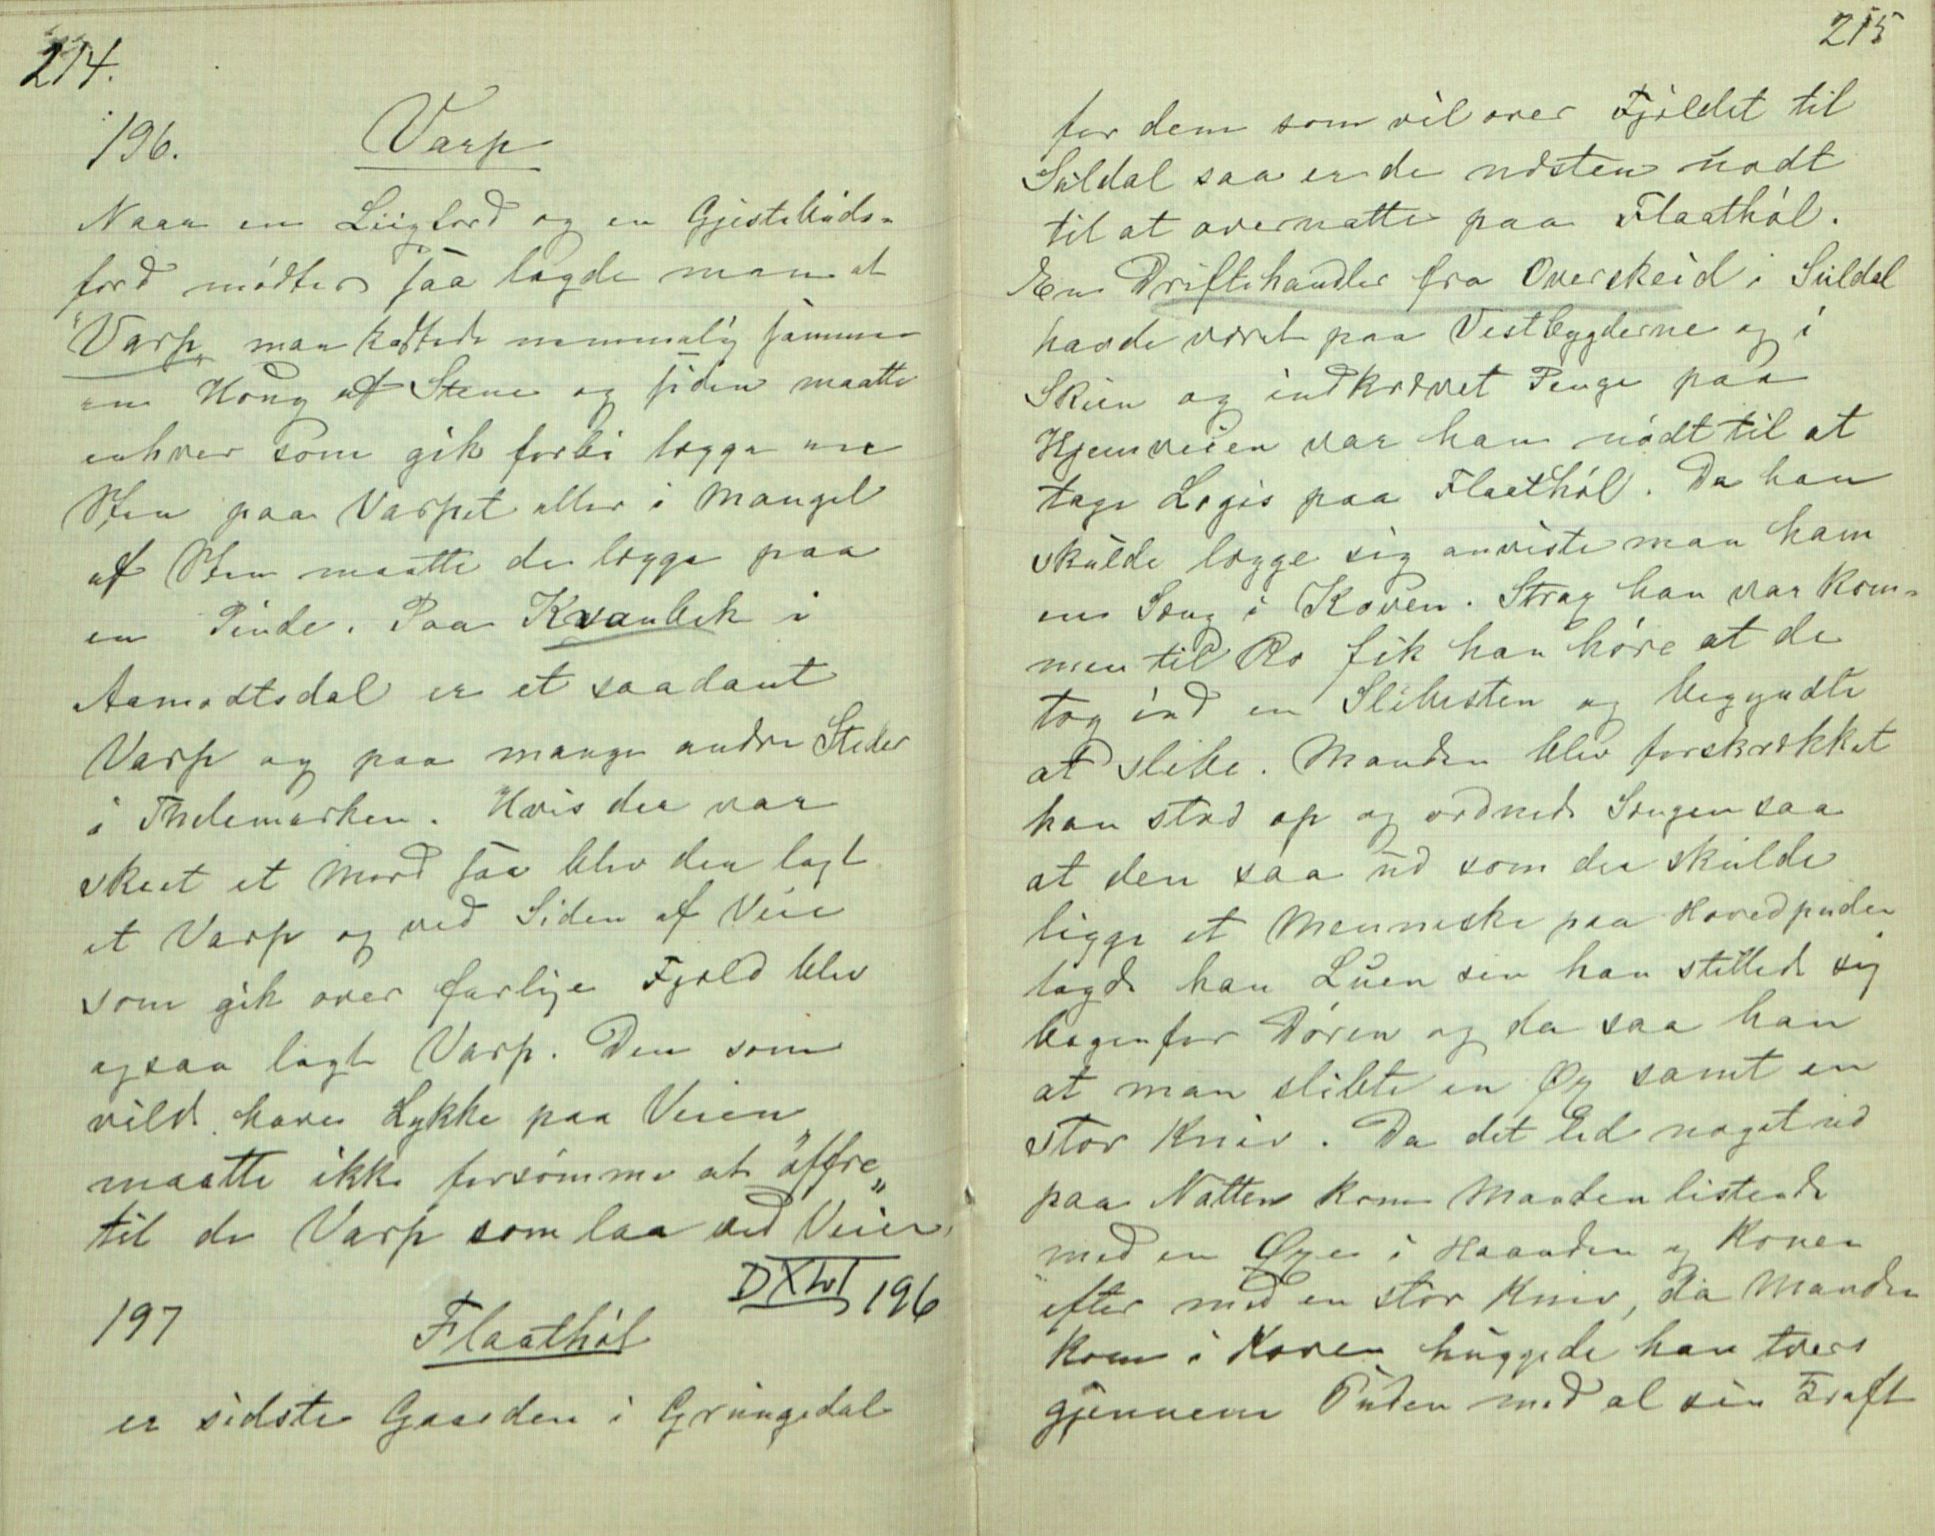 214.
196. Varp
Naar en Liigferd og en Gjestebuds-
ferd mødtes saa lagde man et
"Varp" man kastede nemmelig sammen
en Houg af Stene og siden maatte
enhver som gik forbi lægge en
Sten paa Varpet eller i Mangel
af Sten maatte de lægge paa
en Pinde. Paa Kvanbek i
Aamodtsdal er et saadant
Varp og paa mange andre Steder
i Thelemarken. Hvis der var
skeet et Mord saa blev der lagt
et Varp og ved Siden af Veie
som gik over farlige Fjeld blev
ogsaa lagt Varp. Den som
vilde have Lykke paa Veien
maatte ikke forsømme at "offre"
til de Varp som laa ved Veien.
196
197 Flaathøl
er sidste Gaarden i Grungedal
215
for dem som vil over Fjeldet til
Suldal saa er de næsten nødt
til at overnatte paa Flaathøl.
En Driftehandler fra Overskeid i Suldal
havde været paa Vestbygderne og i
Skien og indkrævet Penge paa
Hjemveien var han nødt til at
tage Logis paa Flaathøl. Da han
skulde lægge sig anviste man ham
en Seng i Koven. Strax han var kom-
men til Ro fik han høre at de
tog ind en Slibesten og begyndte
at slibe. Manden blev forskrækket
han stod op og ordnede Sengen saa
at den saa ud som der skulde
ligge et Menneske paa Hovedpuden
lagde han Luen sin han stillede sig
bagenfor Døren og da saa han
at man slibte en Øx samt en
stor Kniv. Da det led noget ud
paa Natten kom Manden listende
med en Øxe i Haanden og Konen
efter med en stor Kniv, da Manden
kom i Koven huggede han tvers
gjennem Puden med al sin Kraft